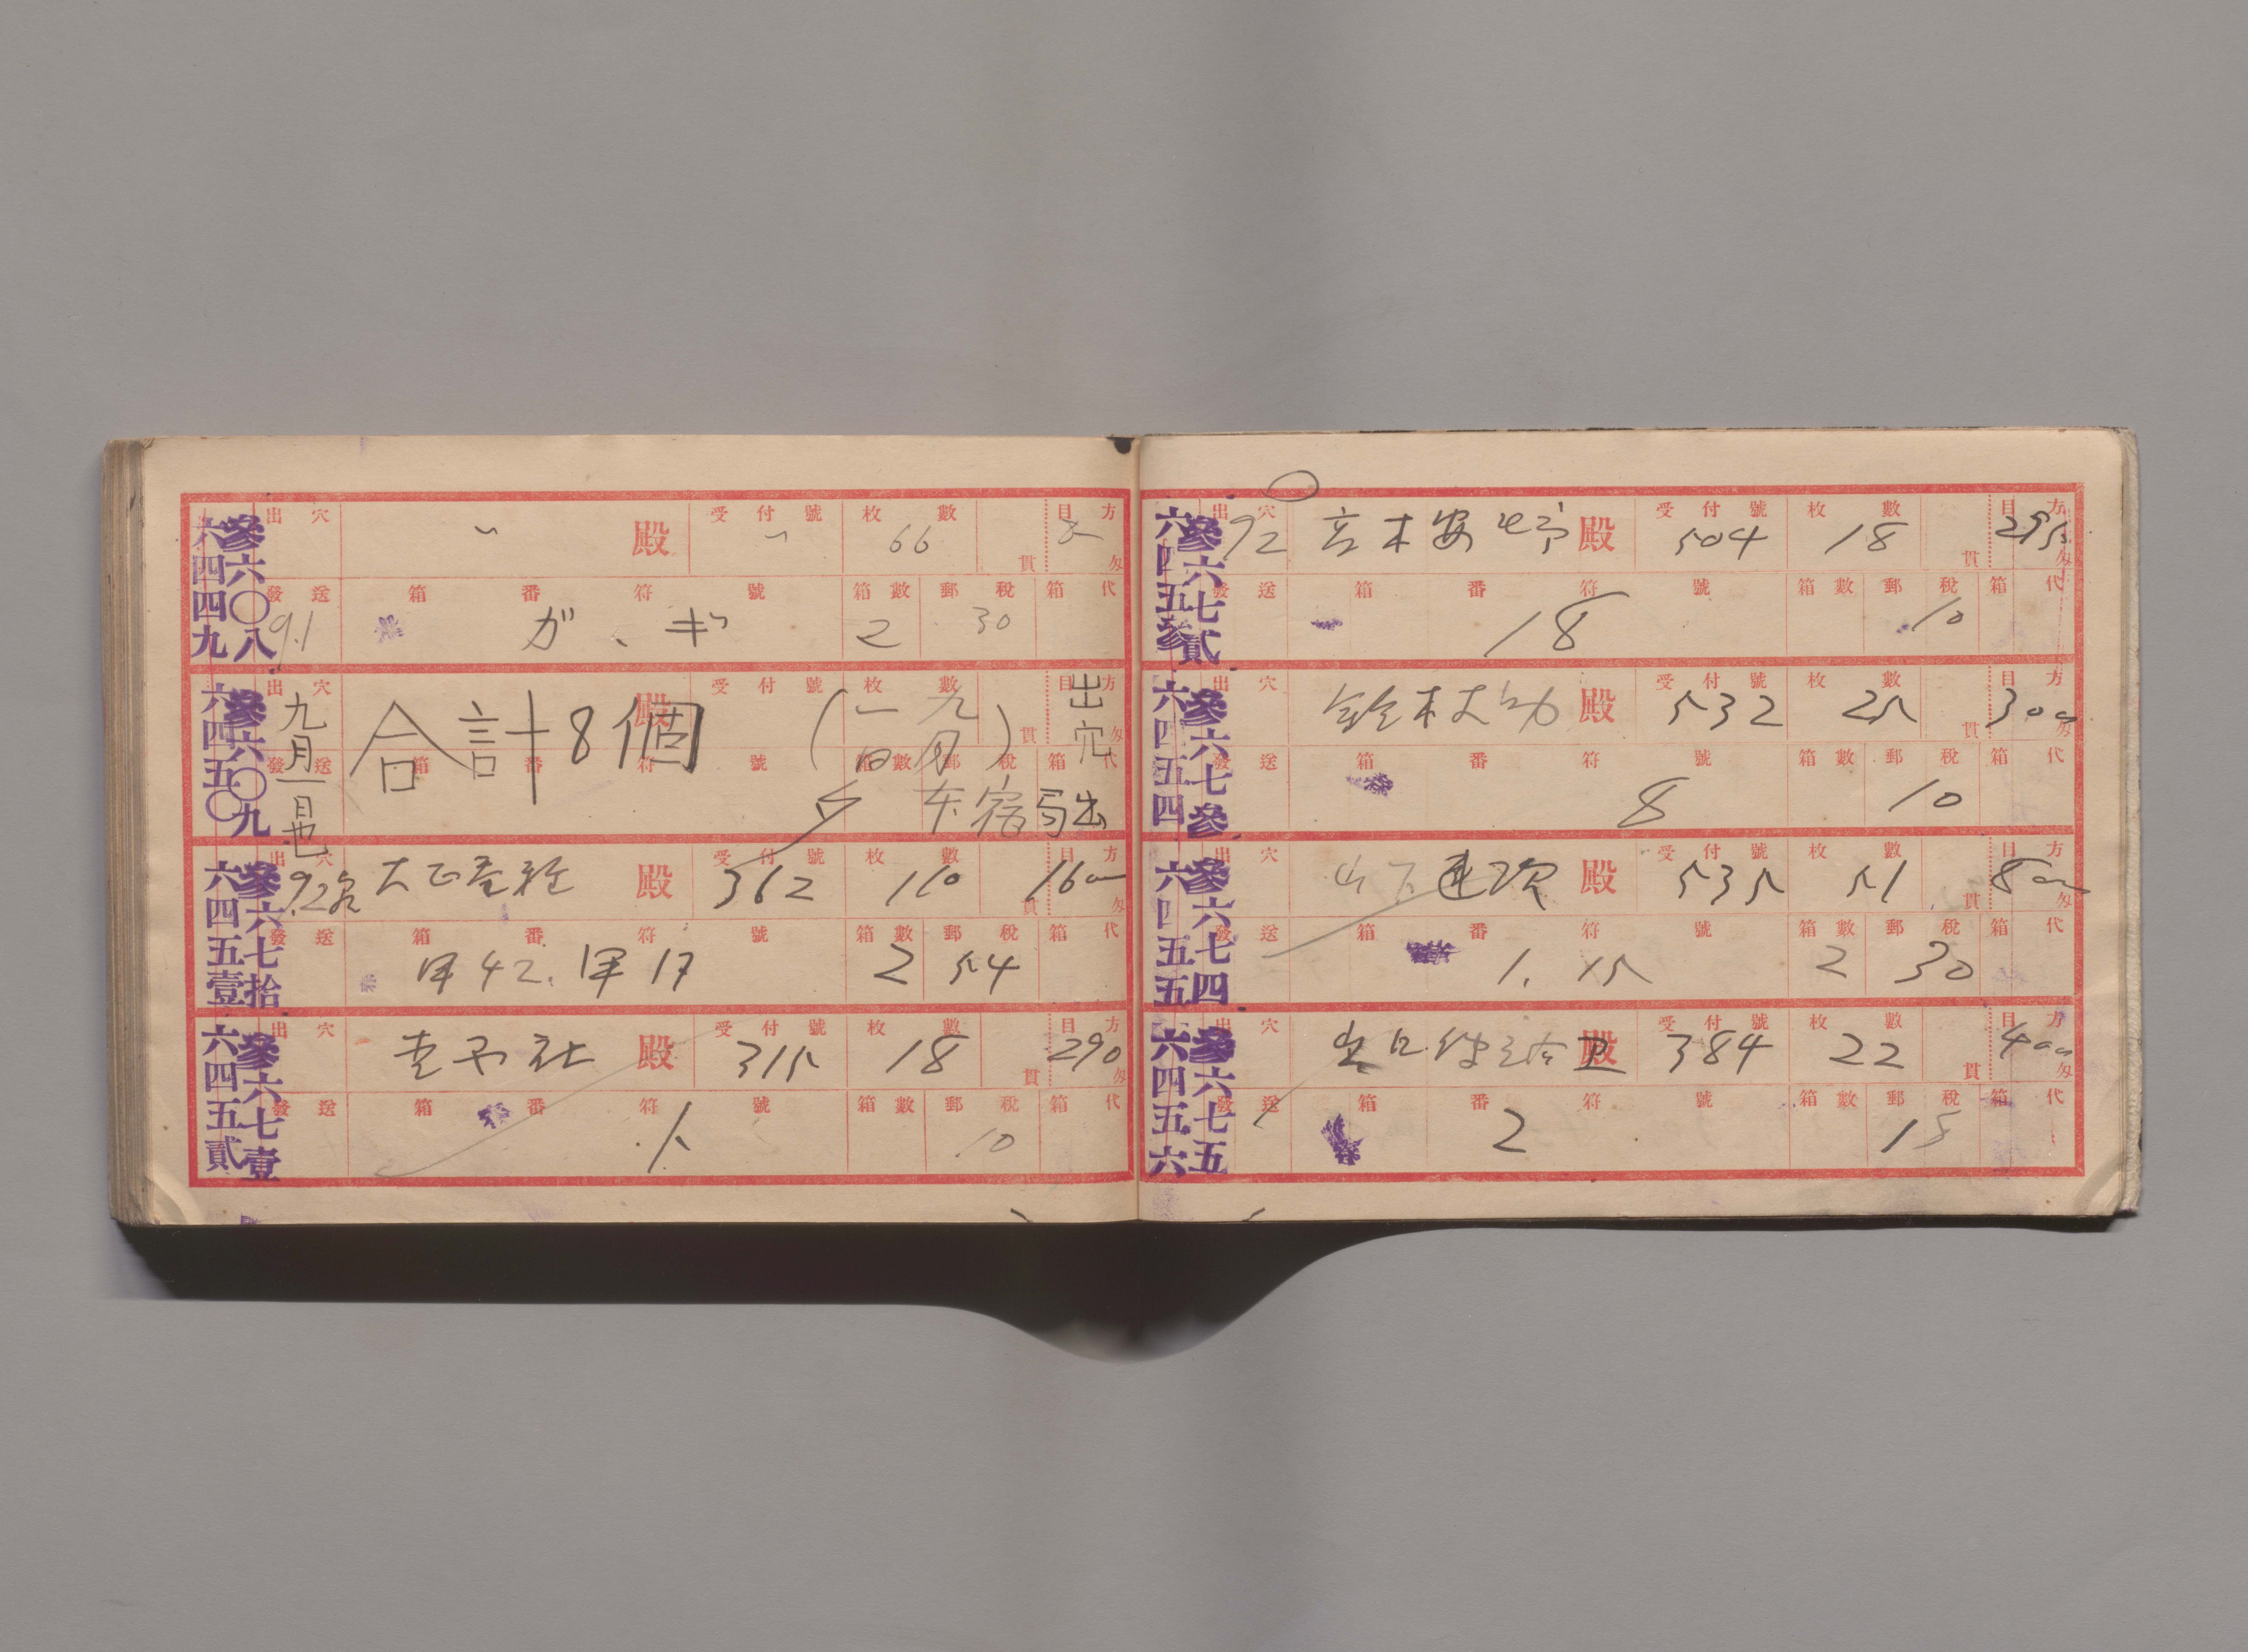 六四四九 參六〇八
出穴 〃 殿 受付號 〃 枚數 66 貫 目方 匁
發送 9.1 箱番符號 ガ、ギ 箱數 2 郵税 30 箱代
六四五〇 參六〇九
九月一日也
出穴 殿 受付號 枚數 貫 目方 匁
合計8個 (九月一日) 出穴
發送 箱番符號 箱數 郵税 箱代
局出
六四五壹 參六七拾
出穴 9.2 大正 殿 受付號 362 枚數 110 貫 目方 1600 匁
發送 箱番符號 甲42. 甲17 箱數 2 郵税 54 箱代
六四五貳 參六七壹
出穴 社 殿 受付號 315 枚數 18 貫 目方 290 匁
發送 箱番符號 箱數 郵税 10 箱代
六四五參 參六七貳
出穴 92 殿 受付號 504 枚數 18 貫 目方 295 匁
發送 箱番符號 18 箱數 郵税 10 箱代
六四五四 參六七參
出穴 鈴木 殿 受付號 532 枚數 25 貫 目方 300 匁
發送 箱番符號 8 箱數 郵税 10 箱代
六四五五 參六七四
出穴 山下 殿 受付號 535 枚數 51 貫 目方 800 匁
發送 箱番符號 1. 15 箱數 2 郵税 30 箱代
六四五六 參六七五
出穴 殿 受付號 384 枚數 22 貫 目方 400 匁
發送 箱番符號 2 箱數 郵税 15 箱代